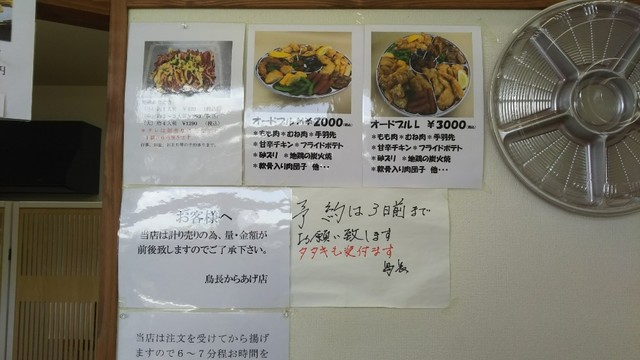 オードブルM ¥2000(税込)
*もも肉*むね肉*手羽先
*甘辛チキン*フライドポテト
*砂ズリ *地鶏の炭火焼
*軟骨入り肉団子 他・・・
オードブルL ¥3000(税込)
*もも肉*むね肉*手羽先
*甘辛チキン*フライドポテト
*砂ズリ *地鶏の炭火焼
*軟骨入り肉団子 他・・・
お客様へ
当店は計り売りの為、量・金額が
前後致しますのでご了承下さい。
鳥長からあげ店
予約は3日前まで
お願い致します
タタキも受付ます
鳥長
当店は注文を受けてから揚げ
ますので6～7分程お時間を
円